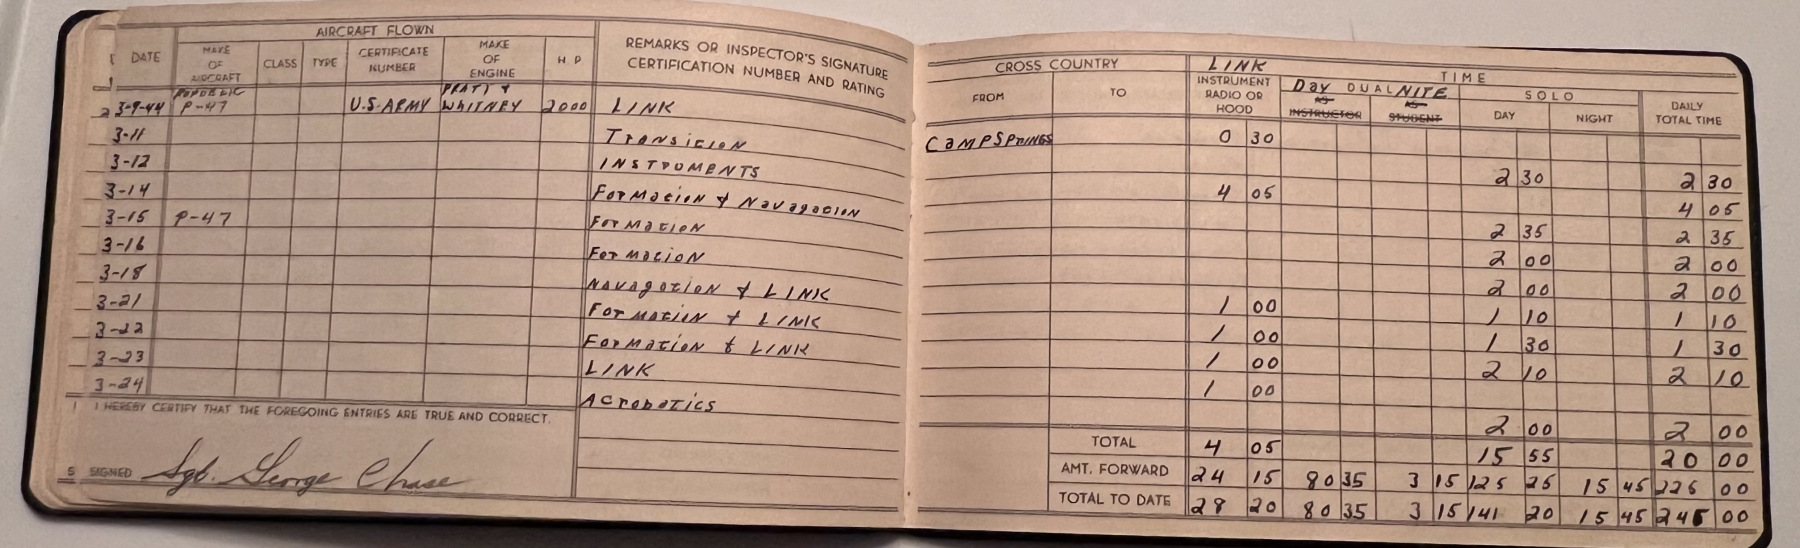 AIRCRAFT FLOWN
DATE MAKE OF AIRCRAFT CLASS TYPE CERTIFICATE NUMBER MAKE OF ENGINE H. P. REMARKS OR INSPECTOR'S SIGNATURE CERTIFICATION NUMBER AND RATING
3-9-44 REPUBLIC P-47 U.S. ARMY PRATT & WHITNEY 2000 LINK
3-11 Transition
3-12 INSTRUMENTS
3-14 Formation & Navagation
3-15 P-47 Formation
3-16 Formation
3-18 Navagation & LINK
3-21 Formation & LINK
3-22 Formation & LINK
3-23 LINK
3-24 Acrobatics
I HEREBY CERTIFY THAT THE FOREGOING ENTRIES ARE TRUE AND CORRECT.
SIGNED Sgt. George Chase
CROSS COUNTRY LINK TIME
FROM TO INSTRUMENT RADIO OR HOOD DAY DUAL NITE SOLO DAILY TOTAL TIME
AS INSTRUCTOR AS STUDENT DAY NIGHT
CAMP SPRINGS 0 30
2 30 2 30
4 05 4 05
2 35 2 35
2 00 2 00
2 00 2 00
1 00 1 10 1 10
1 00 1 30 1 30
1 00 2 10 2 10
1 00
2 00 2 00
TOTAL 4 05 15 55 20 00
AMT. FORWARD 24 15 80 35 3 15 125 25 15 45 225 00
TOTAL TO DATE 28 20 80 35 3 15 141 20 15 45 245 00